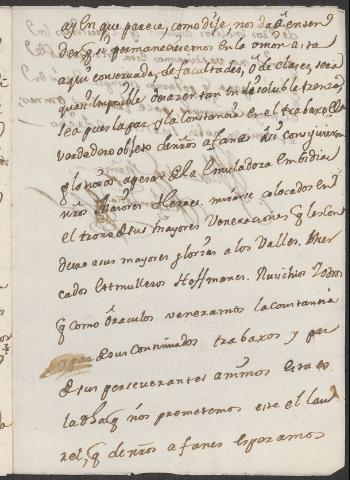 ay en que parece, como dije, nos da a enten
der q.e si permaneciesemos en la amorosa
aqui conservada, de facultades, o de clases, será
quasi imposible desatar tan indisoluble trenza
sea pues la paz y la constancia en el trabaxo el
verdadero objeto de nros afanes
gloriosos apesar de la emuladora embidia
nros mayores Heroes. mirarse colocados en
el trono de sus mayores veneraciones q.e les con
duxo a sus mayores glorias a los Valles. Mer
cados Ettmulleros Hoffmanes. Riverios
q como Oraculos veneramos la constancia
de sus continuados trabaxos y por
de sus perseverantes animos esta es
la dha q nos prometemos este el lau
rel, q de nros afanes esperamos